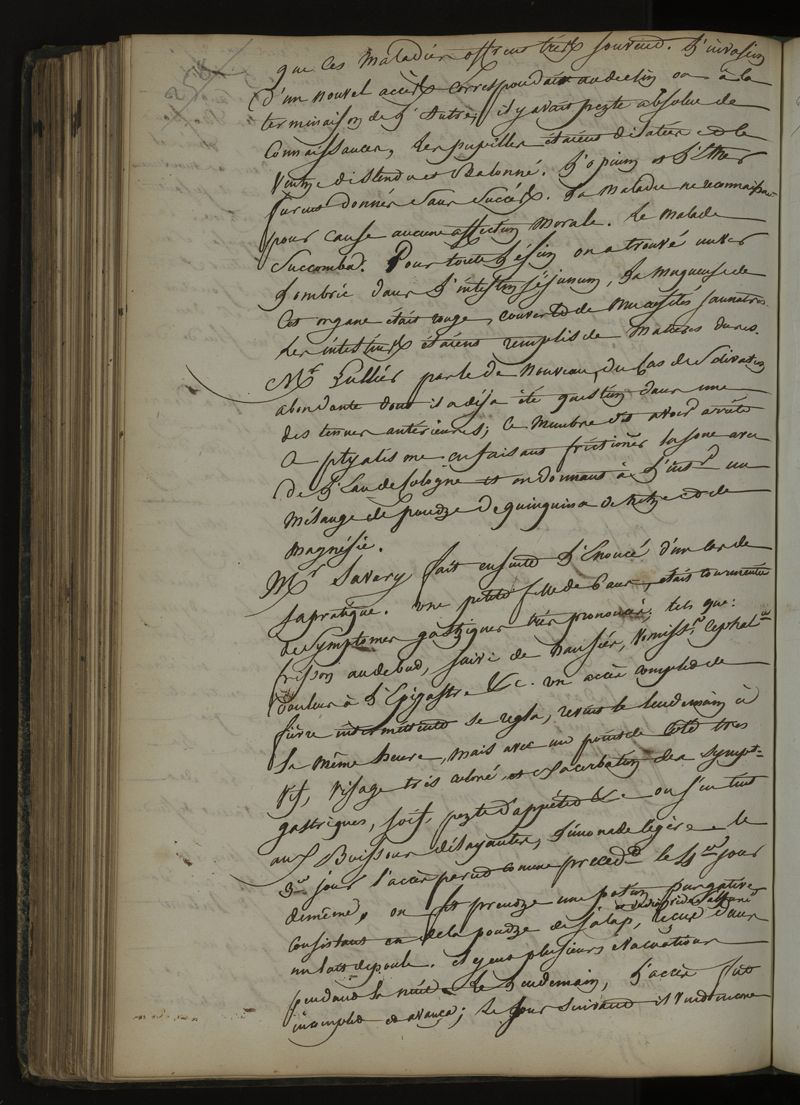 que ces maladies offrent très souvent. L'invasion
d'un nouvel accès correspondait au declin ou à la
terminaison de l'autre, il y avait perte absolue de
connaissances, les pupilles étaient dilatées et le
ventre distendu et balonné. L'opium et l'Ether
furent donnés sans succès. La maladie ne reconnaissait
pour cause aucune affection morale. Le malade
succomba. Pour toute lésion on a trouvé un ver
lombric dans l'intestin jéjunum, la muqueuse de
cet organe était rouge, couverte de mucosités jaunatres
les intestins étaient remplis de matières dures.
Mr Lullier parle de nouveau du cas de salivation
abondante dont il a déja été question dans une
des tenues antérieures; ce membre dit avoir arrêté
ce ptyalisme en faisant frictioner la joue avec
de l'Eau de Cologne et en donnant à l'intr un
mélange de poudre de quinquina de nitre et de
magnésie.
Mr Savery fait ensuite l'Enoncé d'un cas de
sa pratique. Une petite fille de 6 ans, était tourmentée
de symptomes gastriques très prononcés; tels que:
frisson au debut, suivi de nausées, vomisst, cephal
douleur à l'Epigastre &c. un accès complet de
fièvre intermittente se regla, revint le lendemain à
la même heure, mais avec un point de coté très
vif, visage très coloré, et exacerbation des sympt=
gastriques, soif, perte d'appétit &c on s'en tint
aux Boissons délayantes, limonade légère. le
3e jour l'accès parut comme precedt le 4e jour
demême, on fit prendre une potion purgative
consistant en de la poudre de jalap, sucre dans
un lait de poule. il y eut plusieurs évacuations
pendant la nuit. Le lendemain, l'accès fut
incomplet et avança; le jour suivant il vint encore